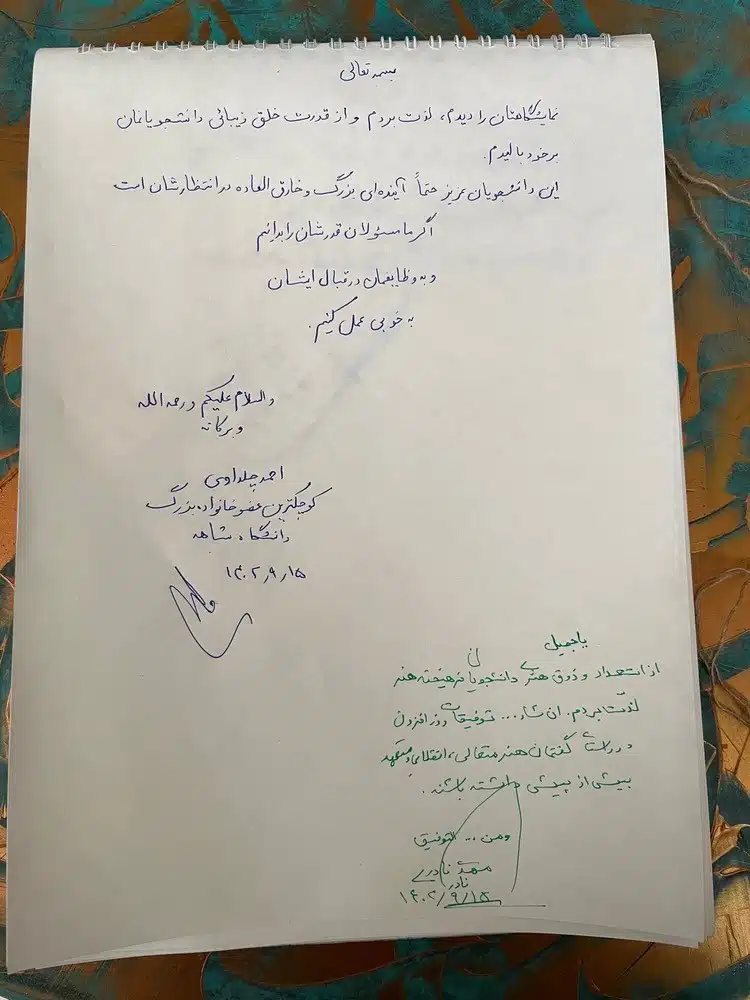 بسمه تعالی
نمایشگاهتان را دیدم، لذت بردم و از قدرت خلق زیبائی دانشجویانمان
بر خود بالیدم.
این دانشجویان عزیز حتماً آینده‌ای بزرگ و خارق العاده در انتظارشان است
اگر ما مسئولان قدرشان را بدانیم
و به وظایفمان در قبال ایشان
به خوبی عمل کنیم.
والسلام علیکم و رحمه الله
و برکاته
احمد چلداوی
کوچکترین عضو خانواده بزرگ
دانشگاه شاهد
۱۴۰۲/۹/۱۵
یا جمیل
از استعداد و ذوق هنری دانشجویان فرهیخته هنر
لذت بردم. ان شاء... توفیقات روز افزون
در راستای گفتمان هنر متعالی، انقلابی و متعهد
بیش از پیش داشته باشند.
و من ... التوفیق
نادری
نادر
۱۴۰۲/۹/۱۵